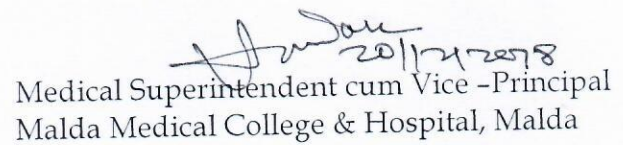 20/12/2018
Medical Superintendent cum Vice –Principal
Malda Medical College & Hospital, Malda